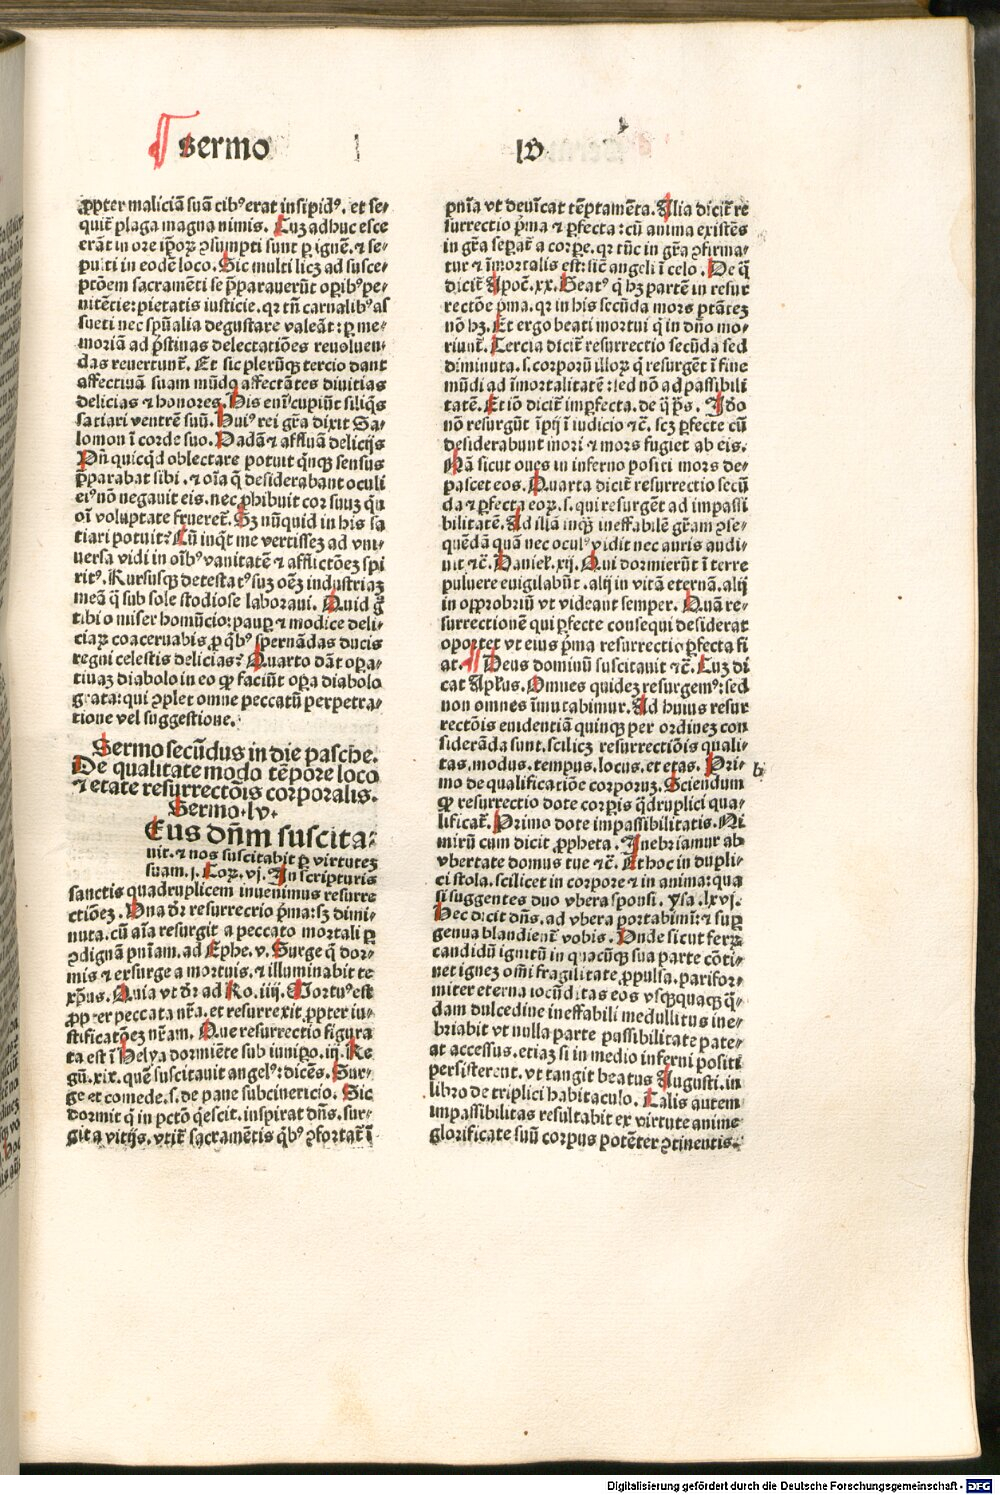 Sermo LV
ꝓpter maliciā suā cibꝰ erat insipidꝰ. et se⸗
quit̄ plaga magna nimis. Cuꝫ adhuc esce
erāt in ore ip̄oꝝ ꝯsumpti sunt ꝑ ignē. ⁊ se⸗
pulti in eodē loco. Sic multi licꝫ ad susce⸗
ptōem sacramēti se p̄parauerūt oꝑibꝰ pe⸗
nitētie: pietatis iusticie. qꝛ tn̄ carnalibꝰ as
sueti nec spūalia degustare valeāt: ꝑ me⸗
moriā ad p̄stinas delectatiōes reuoluen⸗
das reuertunt̄. Et sic pleruꝗ tercio dant
affectiuā suam mūdo affectātes diuitias
delicias ⁊ honores. His eni̅ cupiūt siliq̄s
satiari ventrē suū. Huiꝰ rei gr̄a dixit Sa⸗
lomon ī corde suo. Uadā ⁊ affluā delicijs
Un̄ quicqͥd oblectare potuit qͥnꝗ sensus
p̄parabat sibi. ⁊ oīa q̄ desiderabant oculi
eiꝰ nō negauit eis. nec ꝓhibuit cor suuꝫ qͥn
oī voluptate frueret̄. Sꝫ nūquid in his sa
tiari potuit? Cū inqͥt me vertisseꝫ ad vni⸗
uersa vidi in oībꝰ vanitatē ⁊ afflictōeꝫ spi
ritꝰ. Rursusꝗ detestatꝰ suꝫ oēꝫ industriaꝫ
meā q̄ sub sole studiose laboraui. Quid ḡ
tibi o miser homūcio: pauꝑ ⁊ modice deli⸗
ciaꝝ coaceruabis ꝓ qͥbꝰ spernādas ducis
regni celestis delicias? Quarto dāt oꝑa⸗
tiuaꝫ diabolo in eo ꝙ faciūt oꝑa diabolo
grata: qui ꝯplet omne peccatū perpetra⸗
tione vel suggestione.
Sermo secūdus in die pasche.
De qualitate modo tēpore loco
⁊ etate resurrectōis corporalis.
Sermo. lv.
Eus dn̄m suscita⸗
uit. ⁊ nos suscitabit ꝑ virtuteꝫ
suam. j. Coꝝ. vj. In scripturis
sanctis quadruplicem inuenimus resurre
ctiōeꝫ. Una dr̄ resurrecrio p̄ma: sꝫ dimi⸗
nuta. cū aīa resurgit a peccato mortali ꝑ
ꝯdignā pn̄iam. ad Ephe. v. Surge q̄ dor⸗
mis ⁊ exsurge a mortuis. ⁊ illuminabit te
xp̄us. Quia vt dr̄ ad Ro. iiij. Mortuꝰ est
ꝓpter peccata nr̄a. et resurrexit ꝓpter iu⸗
stificatōeꝫ nr̄am. Que resurrectio figura
ta est ī Helya dormiēte sub iunipo. iij. Re
gū. xix. quē suscitauit angelꝰ: dicēs. Sur⸗
ge et comede. s. de pane subcinericio. Sic
dormit q̄ in pctō qͥescit. inspirat dn̄s. sur⸗
git a vitijs. vtit̄ sacramētis qͥbꝰ ꝯfortat̄ ī
pn̄ia vt deuīcat tēptamēta. Alia dicit̄ re
surrectio p̄ma ⁊ ꝑfecta: cū anima existēs
in gr̄a seꝑat̄ a corꝑe. qꝛ tūc in gr̄a ꝯfirma⸗
tur ⁊ īmortalis est: sic̄ angeli ī celo. De q̄
dicit̄ Apoc̄. xx. Beatꝰ qͥ hꝫ partē in resur
rectōe p̄ma. qꝛ in his secūda mors ptātez
nō hꝫ. Et ergo beati mortui qͥ in dn̄o mo⸗
riunt̄. Tercia dicit̄ resurrectio secūda sed
diminuta. s. corporū illoꝝ qͥ resurgēt ī fine
mūdi ad īmortalitatē: sed nō ad passibili
tatē. Et iō dicit̄ imꝑfecta. de q̄ p̄s. Ido
nō resurgūt īpij ī iudicio ⁊c̄. scꝫ ꝑfecte cū
desiderabunt mori ⁊ mors fugiet ab eis.
Nā sicut oues in inferno positi mors de⸗
pascet eos. Quarta dicit̄ resurrectio secū
da ⁊ ꝑfecta eoꝝ. s. qui resurgēt ad impassi
bilitatē. Ad illā inꝗ̄ ineffabilē gr̄am ꝯse⸗
quēdā quā nec oculꝰ vidit nec auris audi⸗
uit ⁊c̄. Daniel. xij. Qui dormierūt ī terre
puluere euigilabūt. alij in vitā eternā. alij
in opprobriū vt videant semper. Quā re⸗
surrectionē qui ꝑfecte consequi desiderat
oportet vt eius p̄ma resurrectio ꝑfecta fi
at. ¶ Deus dominū suscitauit ⁊c̄. Cuꝫ di
cat Apl̄us. Omnes quideꝫ resurgemꝰ: sed
non omnes īmutabimur. Ad huius resur
rectōis euidentiā quinꝗ per ordineꝫ con
siderāda sunt. scilicꝫ resurrectiōis quali⸗
tas. modus. tempus. locus. et etas. Pri⸗
mo de qualificatiōe corporuꝫ. Sciendum
ꝙ resurrectio dote corꝑis q̄druplici qua⸗
lificat̄. Primo dote impassibilitatis. Ni
mirū cum dicit ꝓpheta. Inebriamur ab
vbertate domus tue ⁊c̄. Et hoc in dupli⸗
ci stola. scilicet in corpore ⁊ in anima: qua
si suggentes duo vbera sponsi. ysa. lxvj.
Hec dicit dn̄s. ad vbera portabimī: ⁊ suꝑ
genua blandient̄ vobis. Unde sicut ferꝝ
candidū ignitū in quacūꝗ sua parte cōti⸗
net igneꝫ oīm fragilitate ꝓpulsa. parifor⸗
miter eterna iocūditas eos vsꝗquaꝗ q̄⸗
dam dulcedine ineffabili medullitus ine⸗
briabit vt nulla parte passibilitate pate⸗
at accessus. etiaꝫ si in medio inferni positi
persisterent. vt tangit beatus Augusti. in
libro de triplici habitaculo. Talis autem
impassibilitas resultabit ex virtute anime
glorificate suū corpus potēter ꝯtinentis.
b
Digitalisierung gefördert durch die Deutsche Forschungsgemeinschaft - DFG